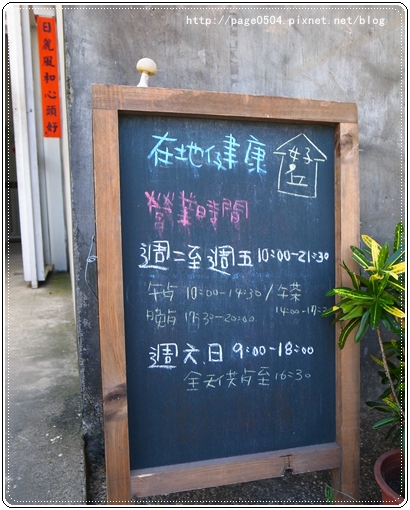 http://page0504.pixnet.net/blog
日麗風和心頭好
在地健康 好丘
營業時間
週二至週五 10:00-21:30
午占 10:00-14:30 / 午茶 14:00-17:
晚占 17:33-20:00
週六日 9:00-18:00
全天供占至 16:30